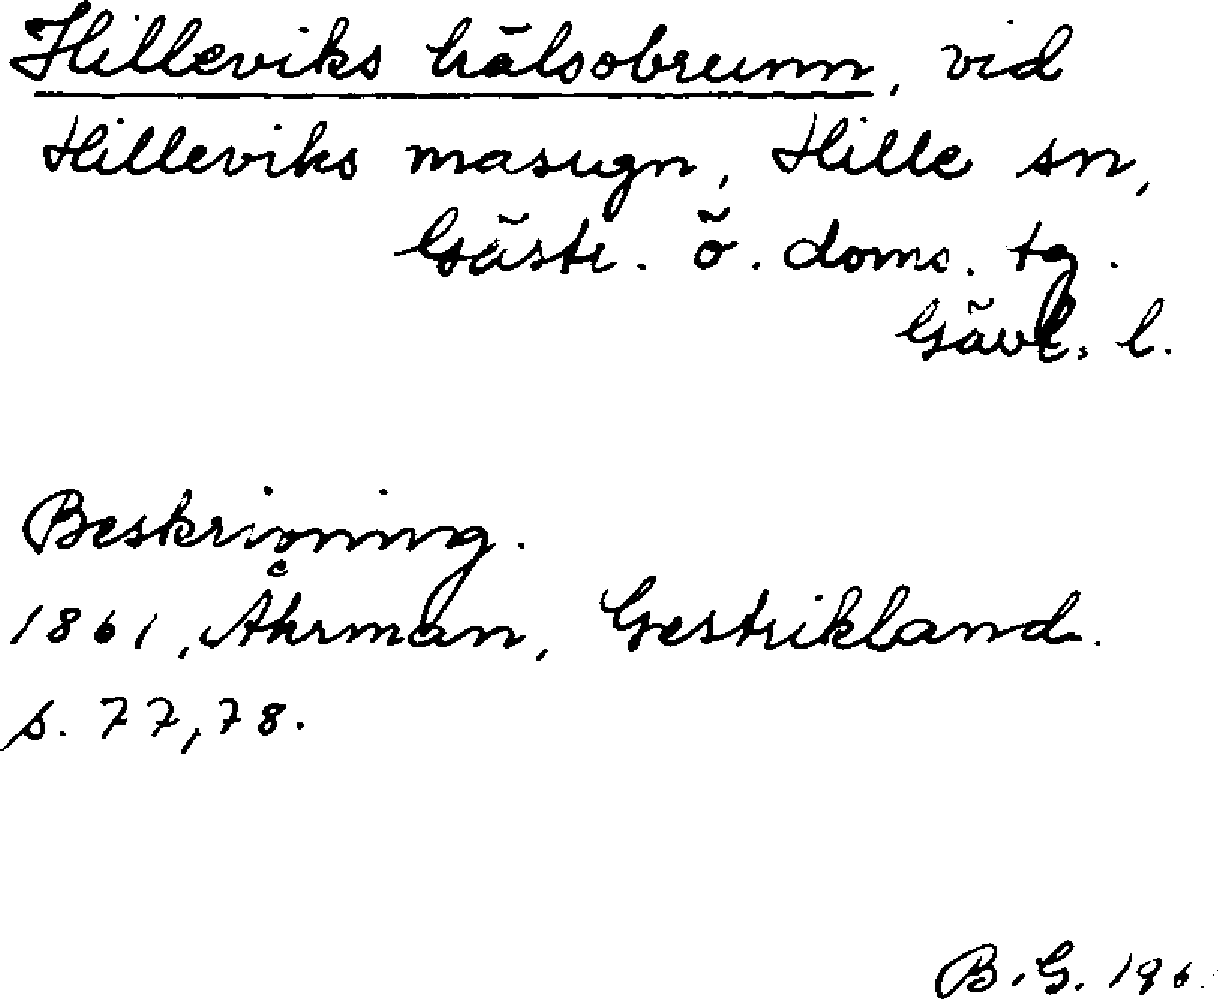 Hilleviks hälsobrunn, vid
Hilleviks masugn, Hille sn,
Gästr. ö. doms. tg.
Gävl. l.
Beskrivning.
1861, Åhrman, Gestrikland.
s. 77, 78.
B. G. 196